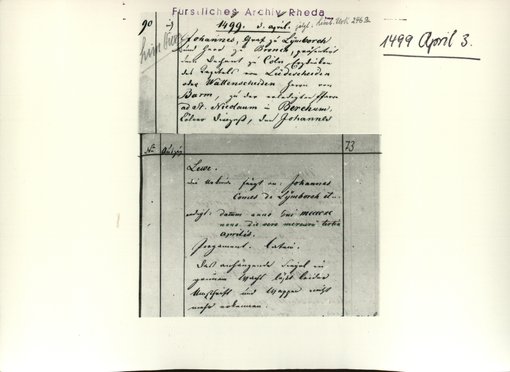 Fürstliches Archiv Rheda
90
1499. 3. april.
1499 April 3.
Johannes, Graf zu Lymborch
und Herr zu Bronck, präsentirt
dem Dechant zu Cöln
des Capitels von Luedescheiden
oder Wattenscheiden Herrn von
Barm, zu der erledigten Pfarre
ad St. Nicolaum in Berchum,
Cölner Diözese, den Johannes
No
73
Lewe.
die Urkunde fängt an: Johannes
Comes de Lymborch et
endigt: datum anno Dni MCCCC
nono die vero mercurii tertia
aprilis.
Pergament. Latein.
Das anhängende Siegel in
grünem Wachs läßt leider
Umschrift und Wappen nicht
mehr erkennen.